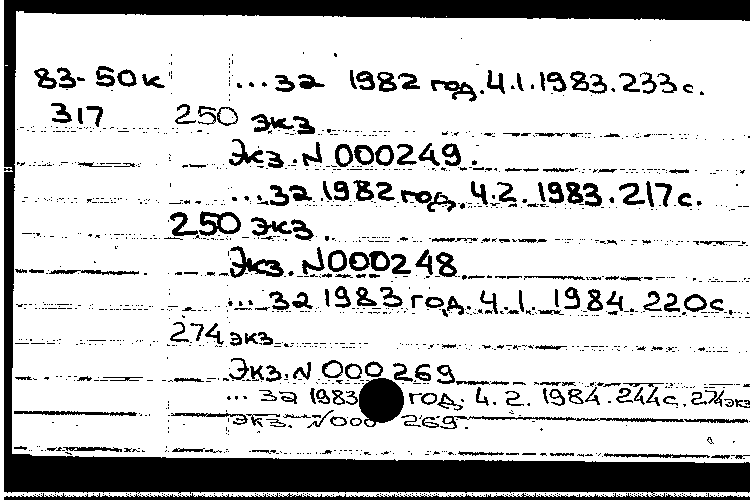 83-50к ...за 1982 год.Ч.1.1983.233с.
317 250 экз
Экз.N 000249.
...за 1982 год. Ч.2. 1983.217с.
250 экз.
Экз. N000248
... за 1983 год. Ч.1. 1984. 220с.
274 экз
Экз.N 000269
... за 1983 год. Ч. 2. 1984.244с.274экз
экз. N000 269.